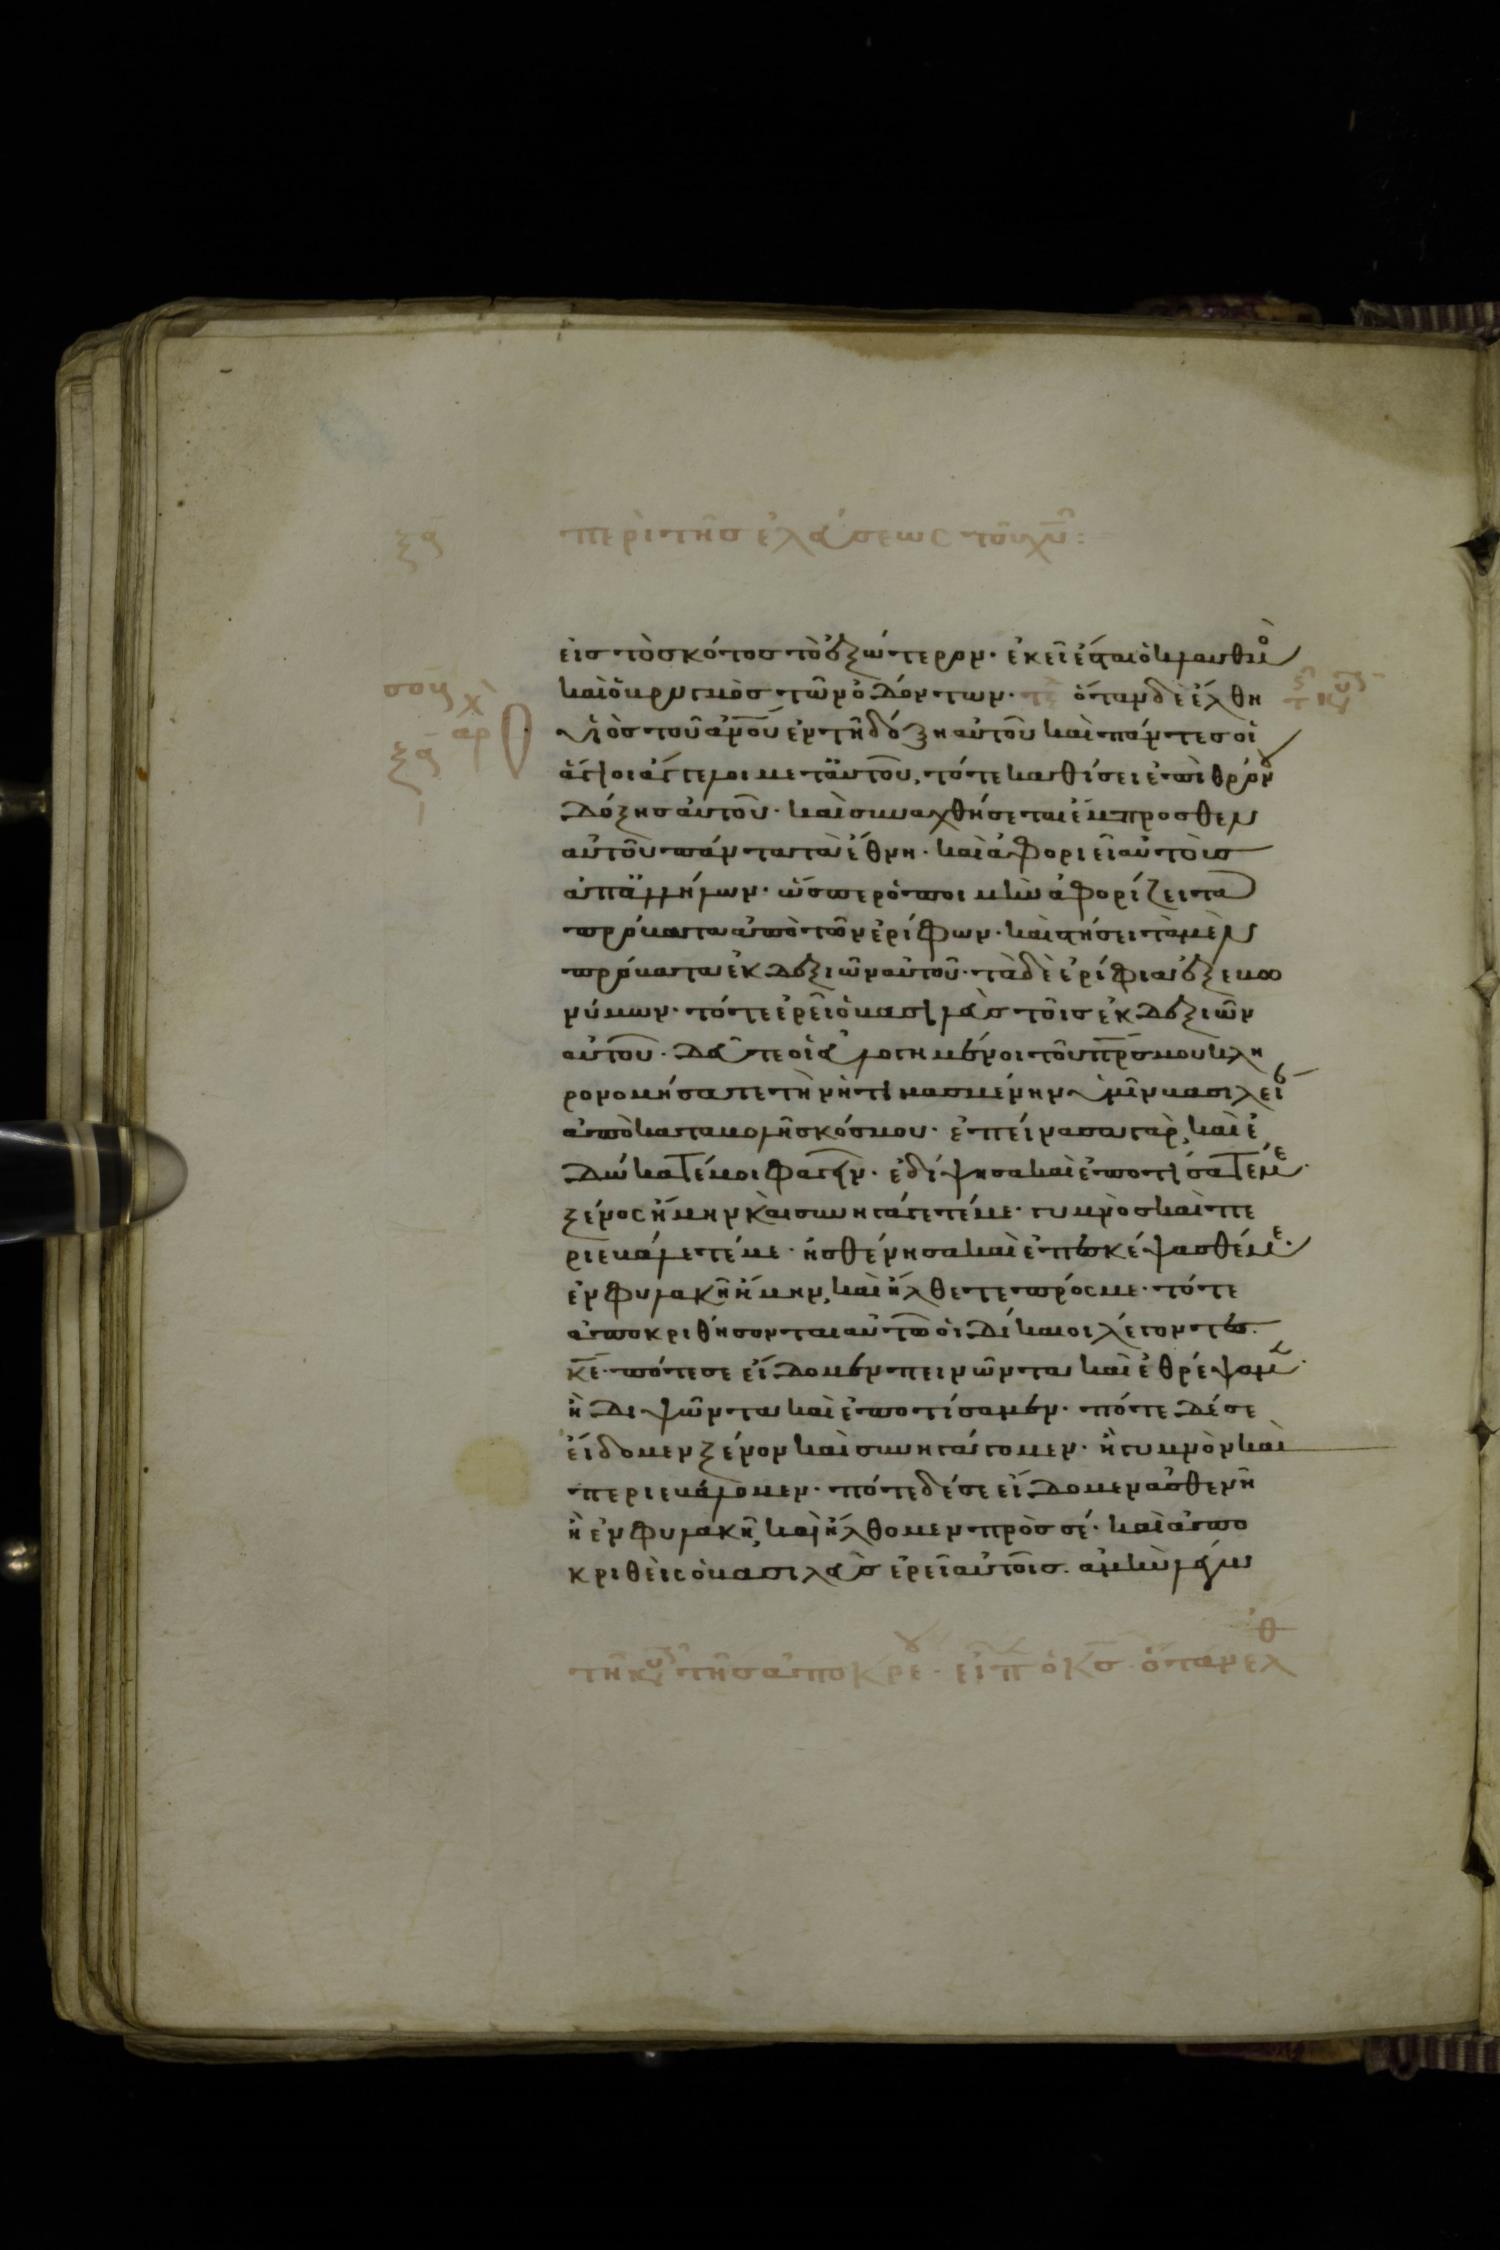 ξα περὶ τῆς ἐλεύσεως τοῦ χυ:
εἰς τὸ σκότος τὸ ἐξώτερον· ἐκεῖ ἔσται ὁ κλαυθμὸ
καὶ ὁ βρυγμὸς τῶν ὀδόντων· ὅταν δὲ ἔλθη
υἱὸς τοῦ ανου ἐν τῆ δόξη αὐτοῦ καὶ πάντες οἱ
ἅγιοι ἄγγελοι μετ' αὐτοῦ, τότε καθίσει ἐπὶ θρόνου
δόξης αὐτοῦ· καὶ συναχθήσεται ἔμπροσθεν
αὐτοῦ πάντα τὰ ἔθνη· καὶ ἀφοριεῖ αὐτοὺς
ἀπ' ἀλλήλων· ὥσπερ ὁ ποιμὴν ἀφορίζει τὰ
πρόβατα ἀπὸ τῶν ἐρίφων· καὶ στήσει τὰ μὲν
πρόβατα ἐκ δεξιῶν αὐτοῦ· τὰ δὲ ἐρίφια ἐξ εὐω
νύμων· τότε ἐρεῖ ὁ βασιλεὺς τοῖς ἐκ δεξιῶν
αὐτοῦ· δεῦτε οἱ εὐλογημένοι τοῦ πρς μου κλη
ρονομήσατε τὴν ἡτοιμασμένην ὑμῖν βασιλεί
ἀπὸ καταβολῆς κόσμου· ἐπείνασα γὰρ, καὶ ἐ
δώκατέ μοι φαγεῖν· ἐδίψησα καὶ ἐποτίσατέ με·
ξένος ἤμην καὶ συνηγάγετέ με· γυμνὸς καὶ πε
ριεβάλετέ με· ἠσθένησα καὶ ἐπεσκέψασθέ με·
ἐν φυλακῆ ἤμην, καὶ ἤλθετε πρός με· τότε
ἀποκριθήσονται αὐτῶ οἱ δίκαιοι λέγοντες·
κε· πότε σε εἴδομεν πεινῶντα καὶ ἐθρέψαμεν·
ἢ διψῶντα καὶ ἐποτίσαμεν· πότε δέ σε
εἴδομεν ξένον καὶ συνηγάγομεν· ἢ γυμνὸν καὶ
περιεβάλομεν· πότε δέ σε εἴδομεν ἀσθενῆ
ἢ ἐν φυλακῆ, καὶ ἤλθομεν πρὸς σέ· καὶ ἀπο
κριθεὶς ὁ βασιλεὺς ἐρεῖ αὐτοῖς· ἀμὴν λέγω
σογ
χ
αρ
ξα
ι
τῆ κυ τῆς ἀποκρε· εἶπ ὁ κς· ὅταν ελθ